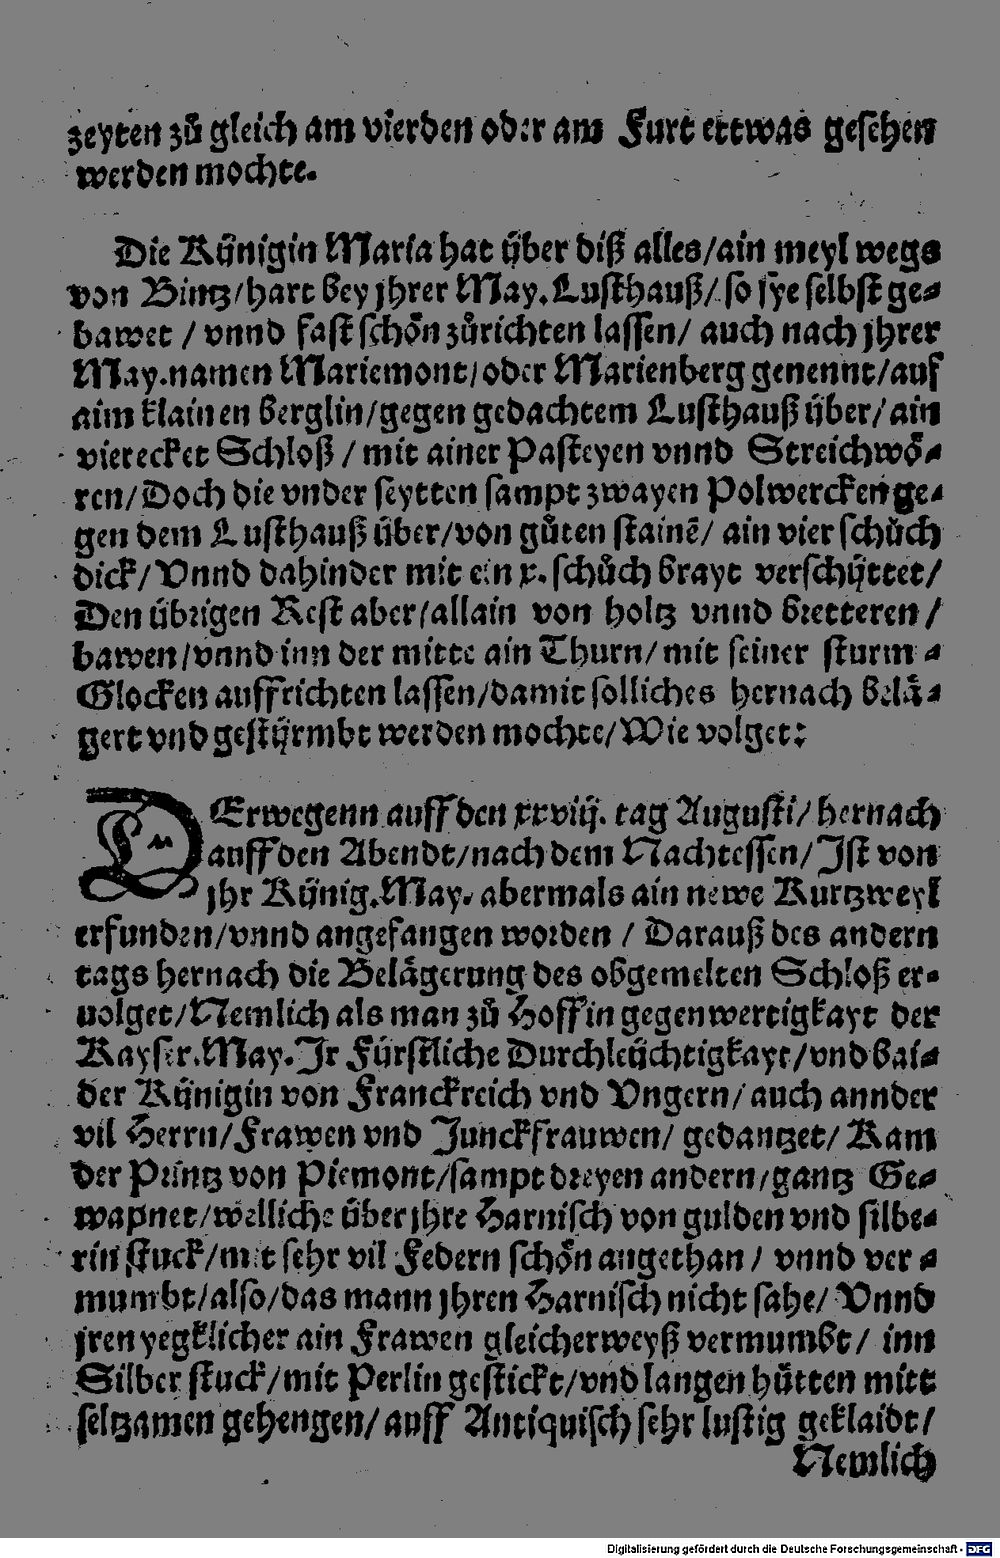 zeyten zů gleich am vierden oder am Furt ettwas gesehen
werden mochte.
Die Künigin Maria hat über diß alles/ain meyl wegs
von Bintz/hart bey jhrer May. Lusthauß/so sye selbst ge-
bawet / vnnd fast schön zůrichten lassen/ auch nach jhrer
May.namen Mariemont/oder Marienberg genennt/auf
aim klainen berglin/gegen gedachtem Lusthauß über/ain
vierecket Schloß / mit ainer Pasteyen vnnd Streichwö-
ren/Doch die vnder seytten sampt zwayen Polwercken ge-
gen dem Lusthauß über/von gůten stainē/ ain vier schůch
dick/Vnnd dahinder mit ein x. schůch brayt verschüttet/
Den übrigen Rest aber/allain von holtz vnnd bretteren /
bawen/vnnd inn der mitte ain Thurn/mit seiner sturm-
Glocken auffrichten lassen/damit solliches hernach belä-
gert vnd gestürmbt werden mochte/Wie volget:
DErwegenn auff den xxviij. tag Augusti/ hernach
auff den Abendt/nach dem Nachtessen/Ist von
jhr Künig.May. abermals ain newe Kurtzweyl
erfunden/vnnd angefangen worden / Darauß des andern
tags hernach die Belägerung des obgemelten Schloß er-
uolget/Nemlich als man zů Hoff in gegenwertigkayt der
Kayser.May.Ir Fürstliche Durchleüchtigkayt/vnd bai-
der Künigin von Franckreich vnd Vngern/auch annder
vil Herrn/Frawen vnd Junckfrauwen/ gedantzet/Kam
der Printz von Piemont/sampt dreyen andern/gantz Ge-
wapnet/welliche über jhre Harnisch von gulden vnd silbe-
rin stuck/mit sehr vil Federn schön angethan / vnnd ver-
mumbt/also/das mann jhren Harnisch nicht sahe/ Vnnd
jren yegklicher ain Frawen gleicherweyß vermumbt/ inn
Silber stuck/mit Perlin gestickt/vnd langen hütten mitt
seltzamen gehengen/auff Antiquisch sehr lustig geklaidt/
Nemlich
Digitalisierung gefördert durch die Deutsche Forschungsgemeinschaft - DFG